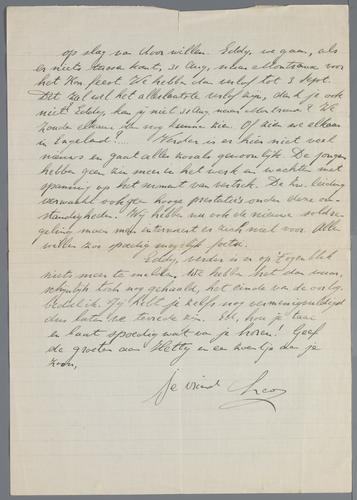 op slag van door willen. Eddy, we gaan, als
er niets tussen komt, 31 Aug. naar Montreux voor
het Kon. feest. We hebben dan verlof tot 3 Sept.
Dit zal wel het allerlaatste verlof zijn, denk je ook
niet Eddy, kan jij niet 31 Aug naar Montreux? We
zouden elkaar dan nog kunnen zien. Of zien we elkaar
in Engeland?.... Verder is er hier niet veel
nieuws en gaat alles zoals gewoonlijk. De jongens
hebben geen zin meer in het werk en wachten met
spanning op het moment van vertrek. De Zw. leiding
verwacht ook geen hooge prestaties onder deze om-
standigheden. Wij hebben nu ook de nieuwe soldij-
geling maar men interesseert er zich niet voor. Allen
willen zoo spoedig mogelijk foetsie.
Eddy, verder is er op 't oogenblik
niets meer te melden. We hebben het dan waar-
schijnlijk toch nog gehaald, het einde van de oorlog
bedoel ik. Jij hebt je zelfs nog vermenigvuldigd
dus laten we tevreden zijn. Ed, hou je taai
en laat spoedig wat van je horen! Geef
de groeten aan Hetty en een zoentje aan je
zoon,
je vriend Leo